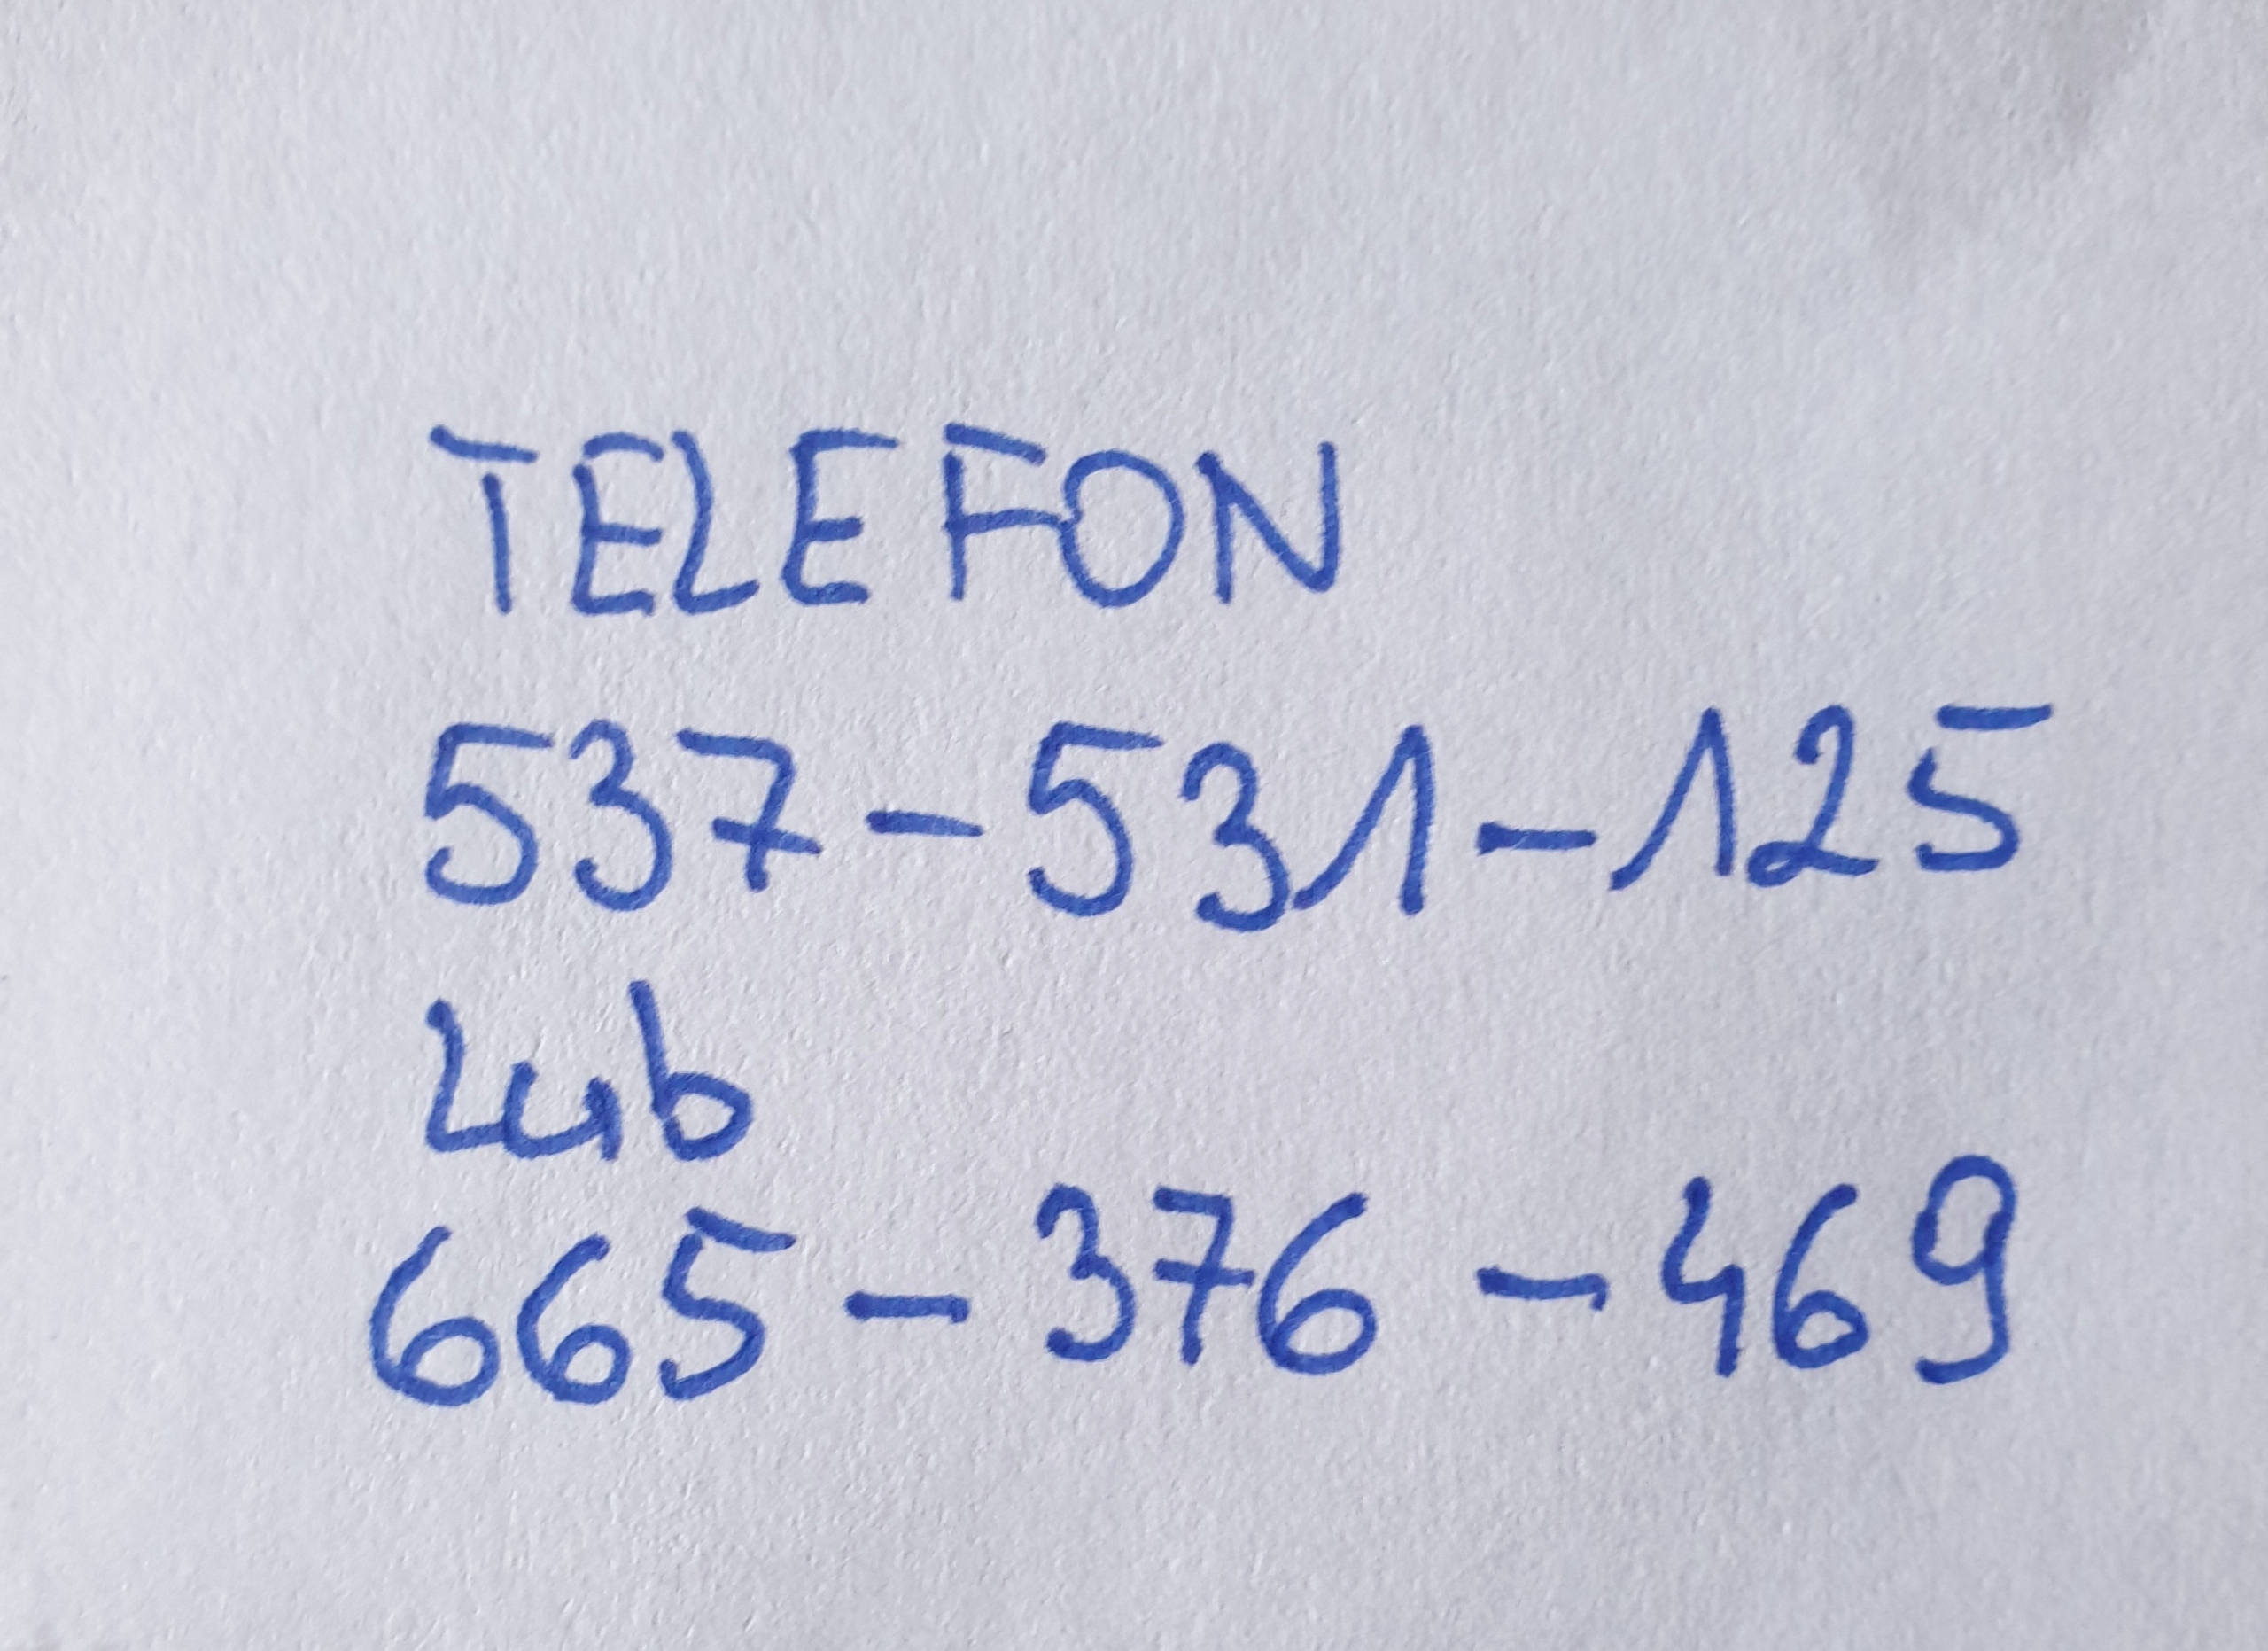 TELEFON
537-531-125
lub
665-376-469